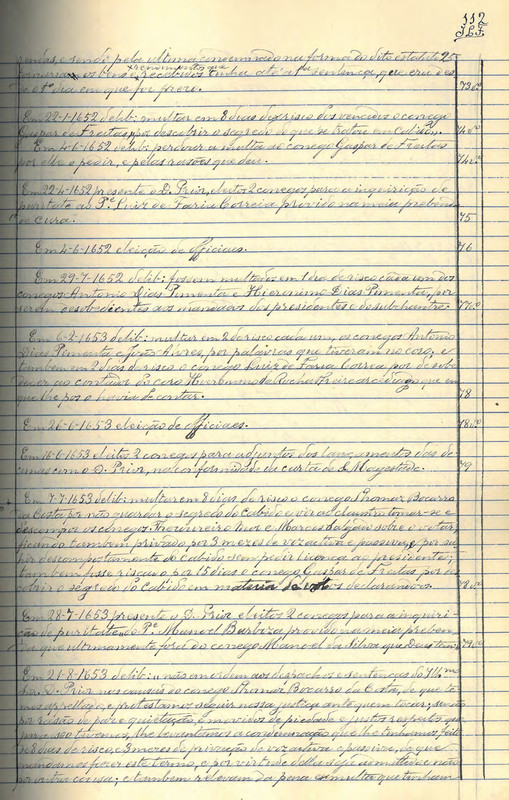 112
J.L.F.
rendas, e sendo pela ultima condemnado na forma do dito estatuto 25
rendimentos que
os bens e recebidos tinha até a 1ª sentença, que era des
de o dia em que foi preso.
73 v.º
Em 22-1-1652 delib: multar em 8 dias de risco dos vencidos o conego
Gaspar de Freitas por descobrir o segredo do que se tratou em Cabido.
74 v.º
Em 4-6-1652 delib: perdoar a multa ao conego Gaspar de Freitas
por elle o pedir, e pelas rasões que deu.
74 v.º
Em 22-4-1652 presente o D. Prior, eleitos 2 conegos para a inquirição de
puritate ao Pe Luiz de Faria Correia provido na meia prebenda
de cura.
75
Em 4-6-1652 eleição de officiaes.
76
Em 29-7-1652 delib: fossem multados em 1 dia de risco cada um dos
conegos Antonio Dias Pimenta e Hieronimo Dias Pimenta, por
serem desobedientes aos mandados dos presidentes e do subchantre.
77 v.º
Em 6-2-1653 delib: multar em 2 de risco cada um, os conegos Antonio
Dias Pimenta e João Alvres, por palavras que tiveram no coro; e
tambem em 2 dias de risco o conego Luiz de Faria Correa, por desobe
decer ao contador do coro Hieronimo da Rocha Freire dizendo que em
que lhe pos o havia de contar.
78
Em 26-6-1653 eleição de officiaes.
78 v.º
Em 16-6-1653 eleitos 2 conegos para adjuntos dos lançamentos das de
cimas com o D. Prior, na conformidade da carta de S. Magestade.
79
Em 7-7-1653 delib: multar em 8 dias de risco o conego Thomaz Bocarro
da Costa por não guardar o segredo do Cabido e vir ao claustro tomar-se e
descompor os conegos Thesoureiro mor e Marcos Salgado sobre o votar,
ficando tambem privado por 3 mezes de voz activa e passiva, e por se
hir descompostamente do Cabido sem pedir licença ao presidente;
tambem fosse riscado por 15 dias o conego Gaspar de Freitas, por des
cobrir o segredo do Cabido em materia de votos declarando-os.
78 v.º
Em 28-7-1653 presente o D. Prior, eleitos 2 conegos para a inquiri
ção de puritate do Pe Manoel Barboza, provido na meia preben
da que ultimamente fora do conego Manoel da Silva que Deus tem.
79 v.º
Em 21-8-1653 delib: não mordem aos despachos e sentenças do Ill.mo
Snr. D. Prior nas causas do conego Thomaz Bocarro da Costa, de que te
mos appellado, e protestamos seguir nossa justiça ante quem tocar; sendo
por rasão de paz e quietação, e movidos de piedade e justos respeitos que
para isso tivemos, lhe levantamos a condemnação que lhe tinhamos feito
de 8 dias de risco, e 3 mezes de privação de voz activa e passiva, do que
mandamos fazer este termo, e por virtude delle seja admittido e não
por outra cousa; e tambem relevam da pena e multa que tinham